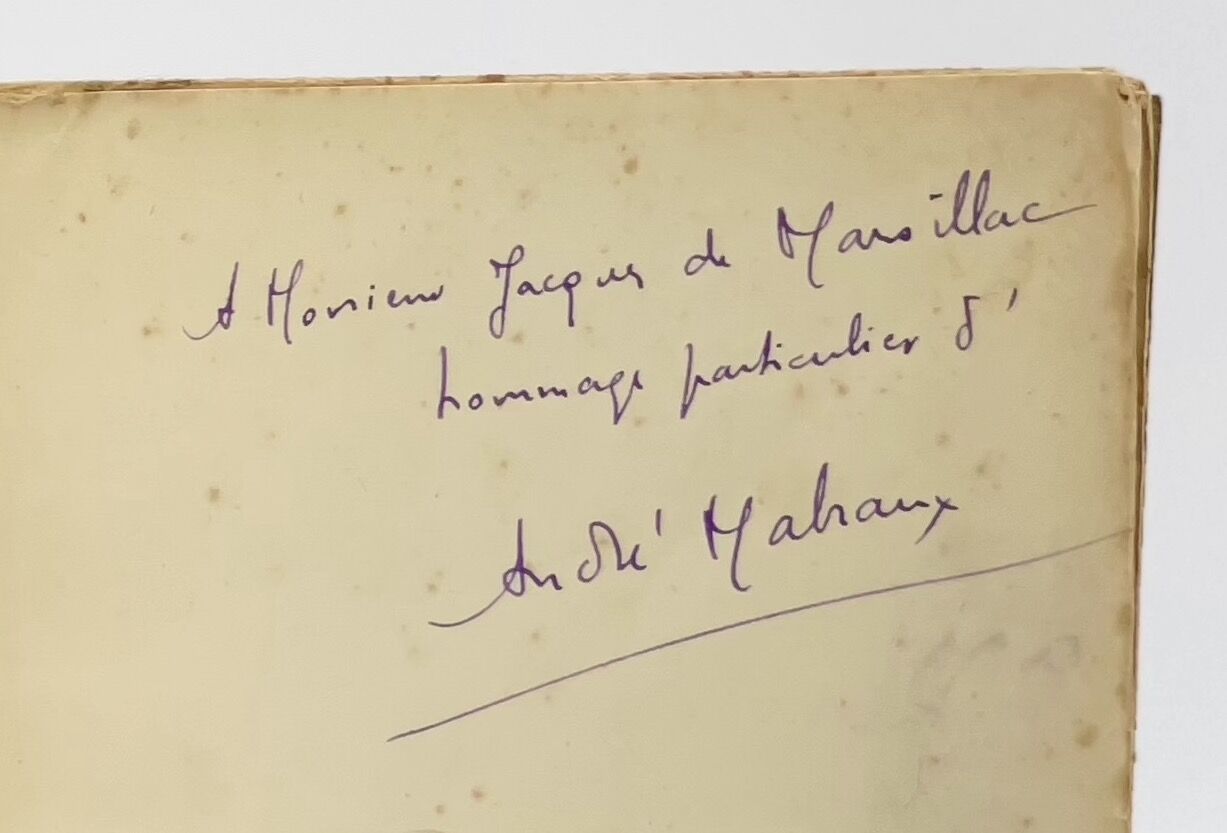 A Monsieur Jacques de Marsillac
hommage particulier d'
André Malraux